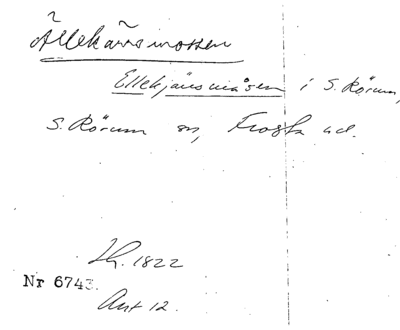 Ällekärrsmossen
Ellekjärsmåsen i S. Rörum,
S. Rörum sn, Frosta hd.
Lh. 1822
Nr 6743.
Akt 12.